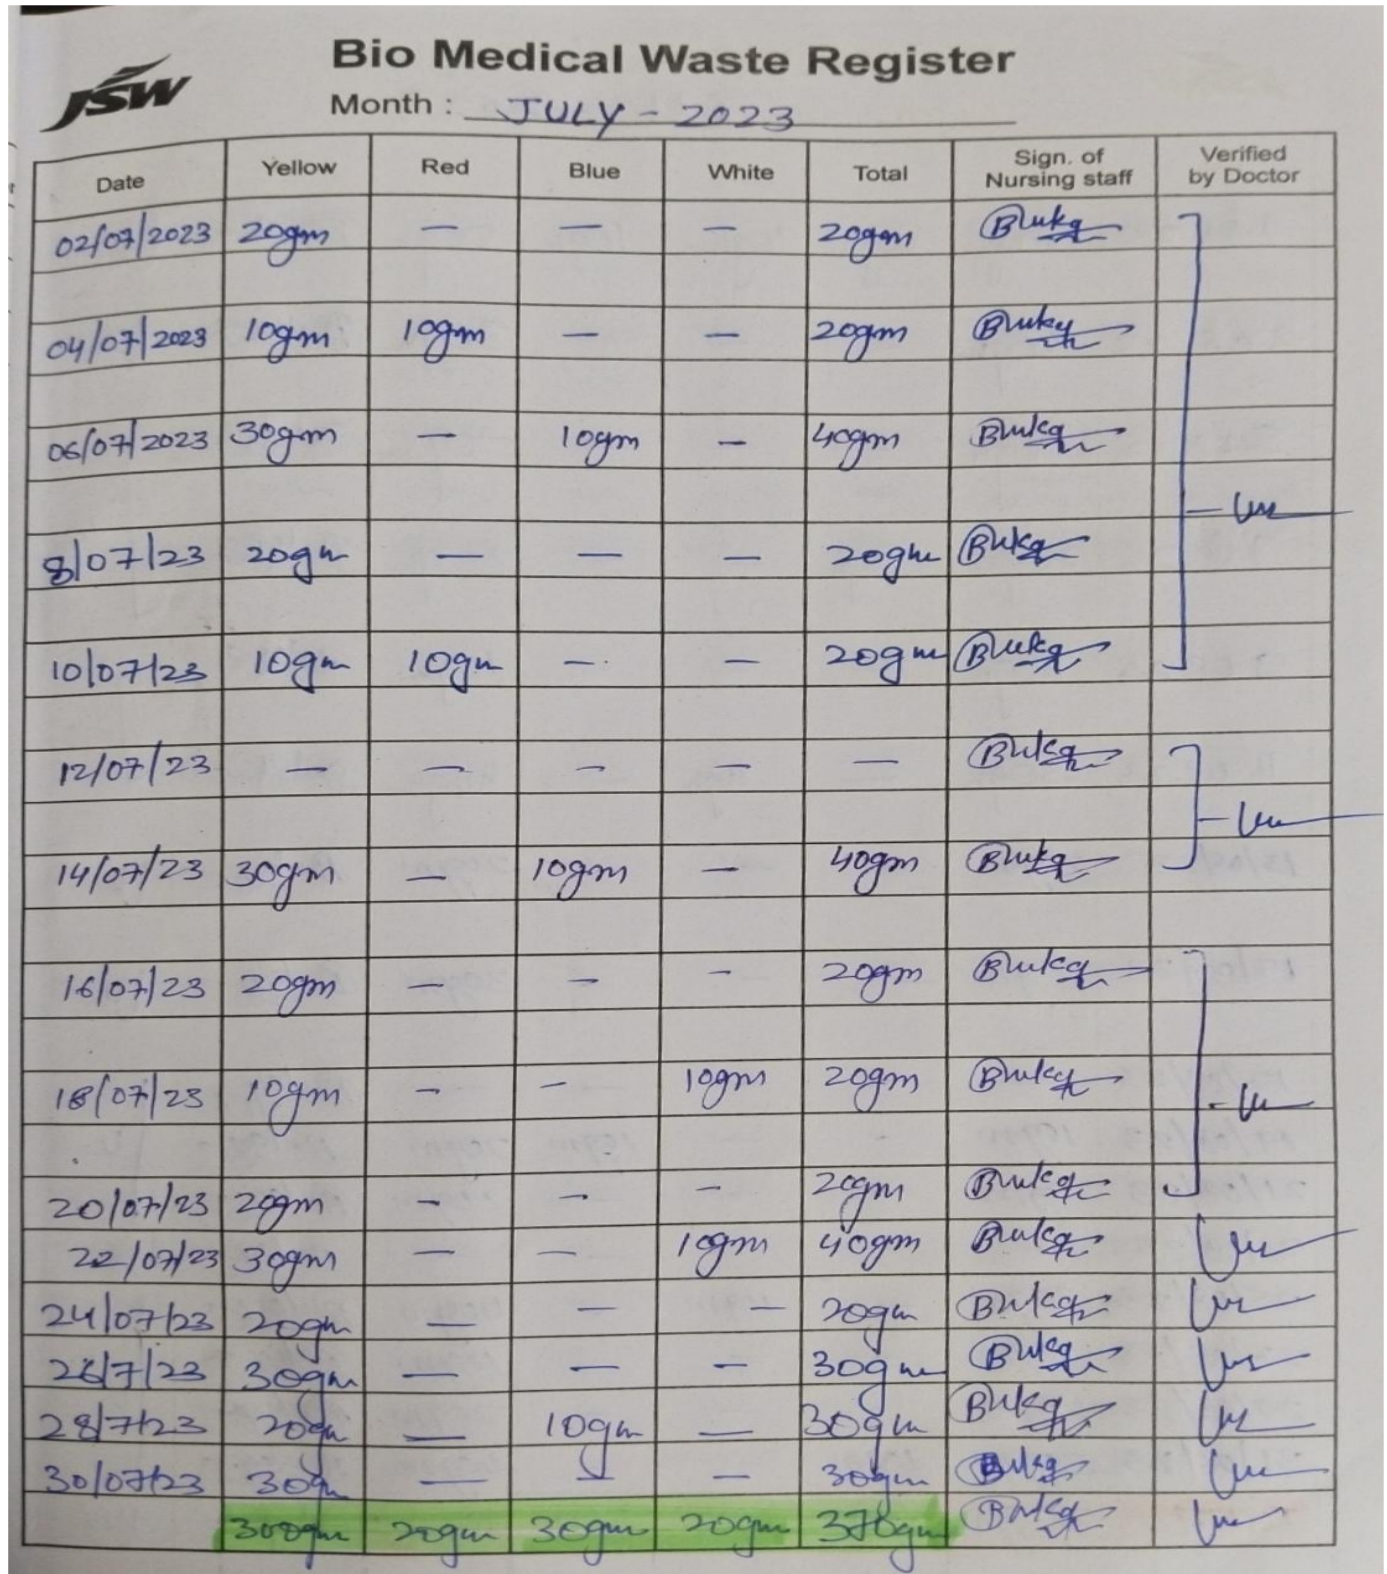 JSW
Bio Medical Waste Register
Month : JULY - 2023
Date Yellow Red Blue White Total Sign. of Nursing staff Verified by Doctor
02/07/2023 20gm — — — 20gm
04/07/2023 10gm 10gm — — 20gm
06/07/2023 30gm — 10gm — 40gm
8/07/23 20gm — — — 20gm
10/07/23 10gm 10gm — — 20gm
12/07/23 — — — — —
14/07/23 30gm — 10gm — 40gm
16/07/23 20gm — — — 20gm
18/07/23 10gm — — 10gm 20gm
20/07/23 20gm — — — 20gm
22/07/23 30gm — — 10gm 40gm
24/07/23 20gm — — — 20gm
26/7/23 30gm — — — 30gm
28/7/23 20gm — 10gm — 30gm
30/07/23 30gm — — — 30gm
300gm 20gm 30gm 20gm 370gm